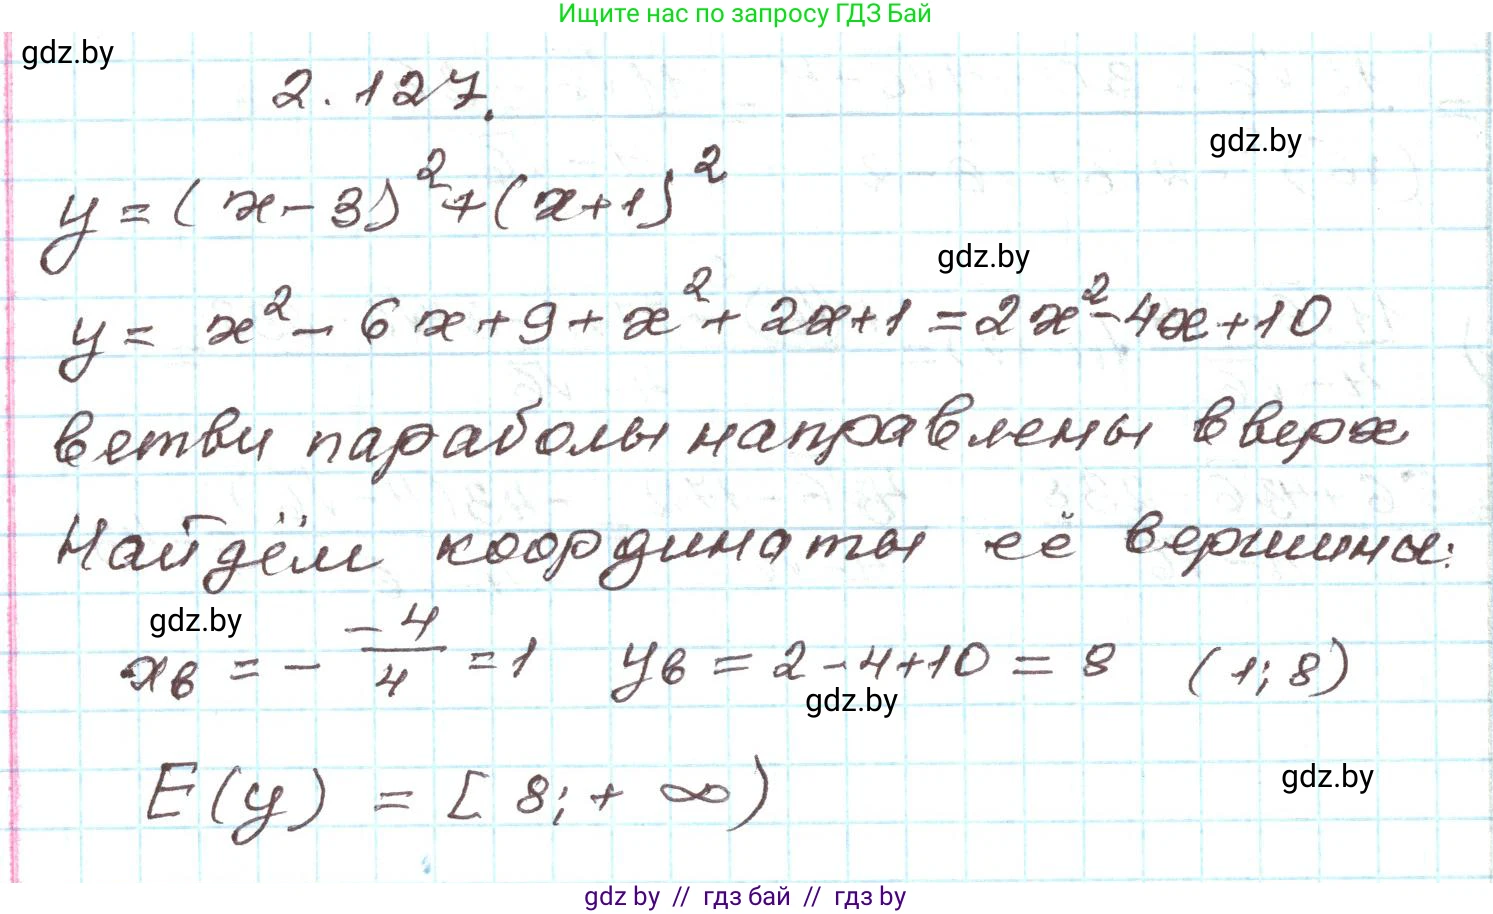 Ищите нас по запросу ГДЗ Бай
gdz.by
2.127.
gdz.by
y = (x - 3)² + (x + 1)²
gdz.by
y = x² - 6x + 9 + x² + 2x + 1 = 2x² - 4x + 10
ветви параболы направлены вверх
Найдём координаты её вершины:
gdz.by
xв = - -4/4 = 1 yв = 2 - 4 + 10 = 8 (1; 8)
gdz.by
E(y) = [8; + ∞)
gdz.by
gdz.by // гдз бай // гдз by